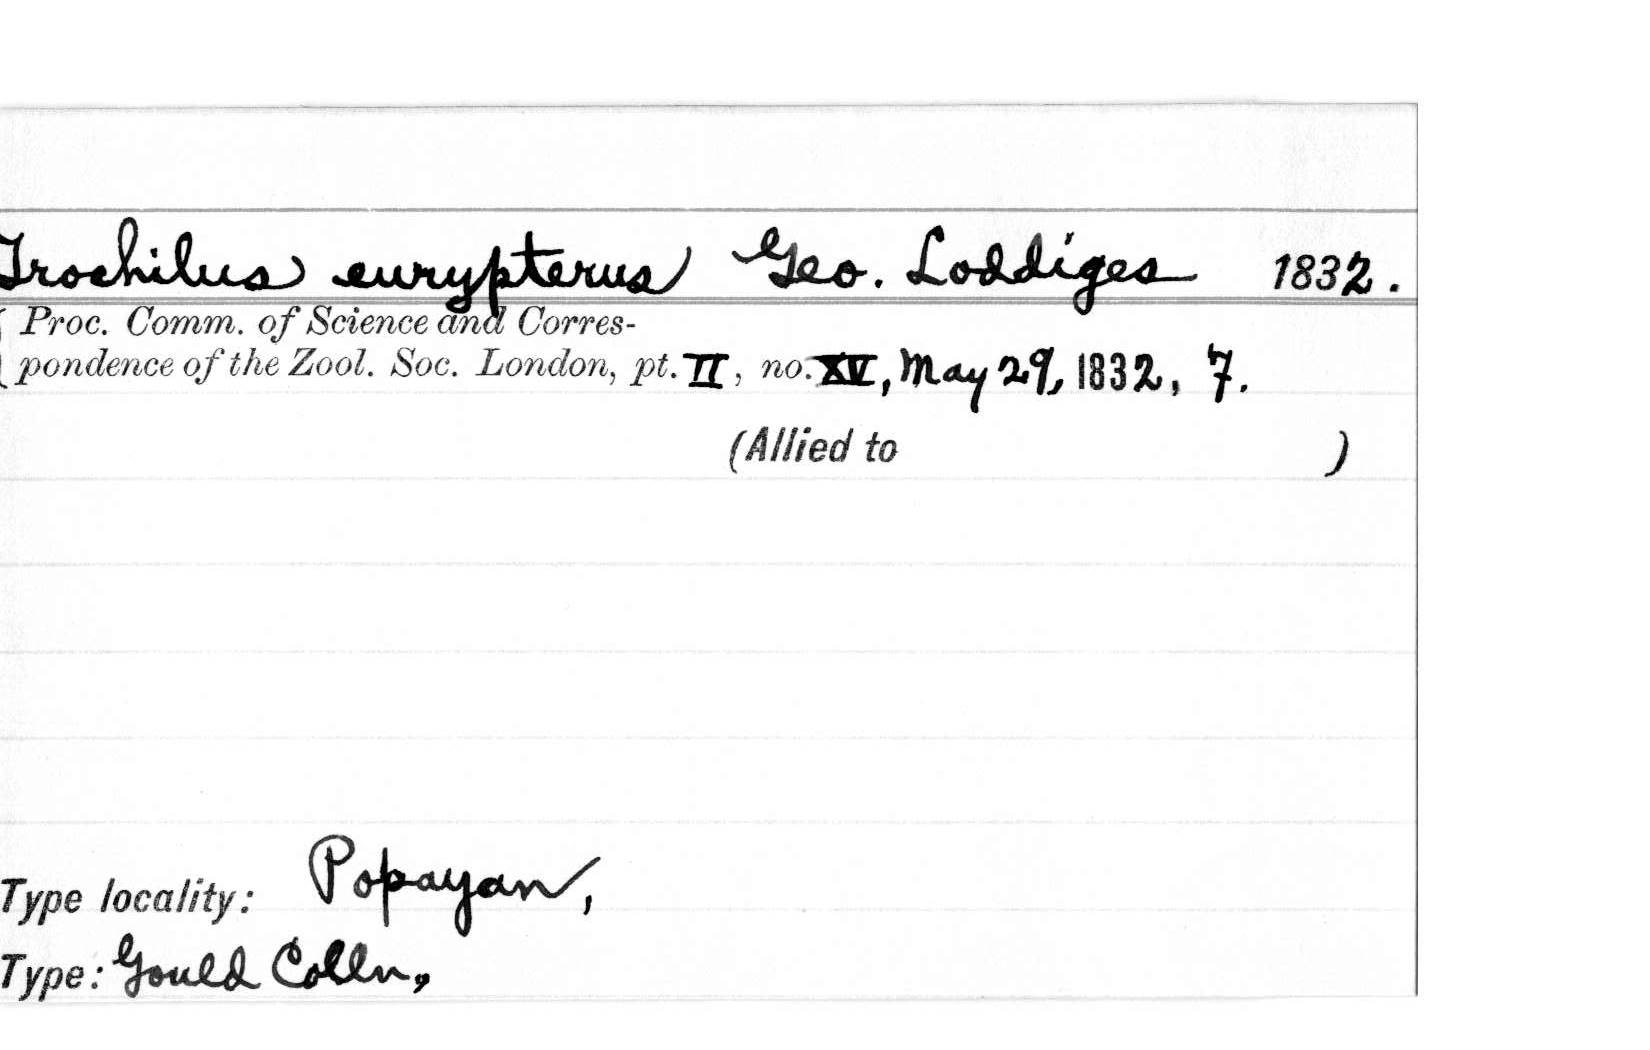 Trochilus eurypterus Geo. Loddiges 1832.
Proc. Comm. of Science and Corres-
pondence of the Zool. Soc. London, pt. II, no. XV, May 29, 1832, 7.
(Allied to )
Type locality: Popayan,
Type: Gould Colln,